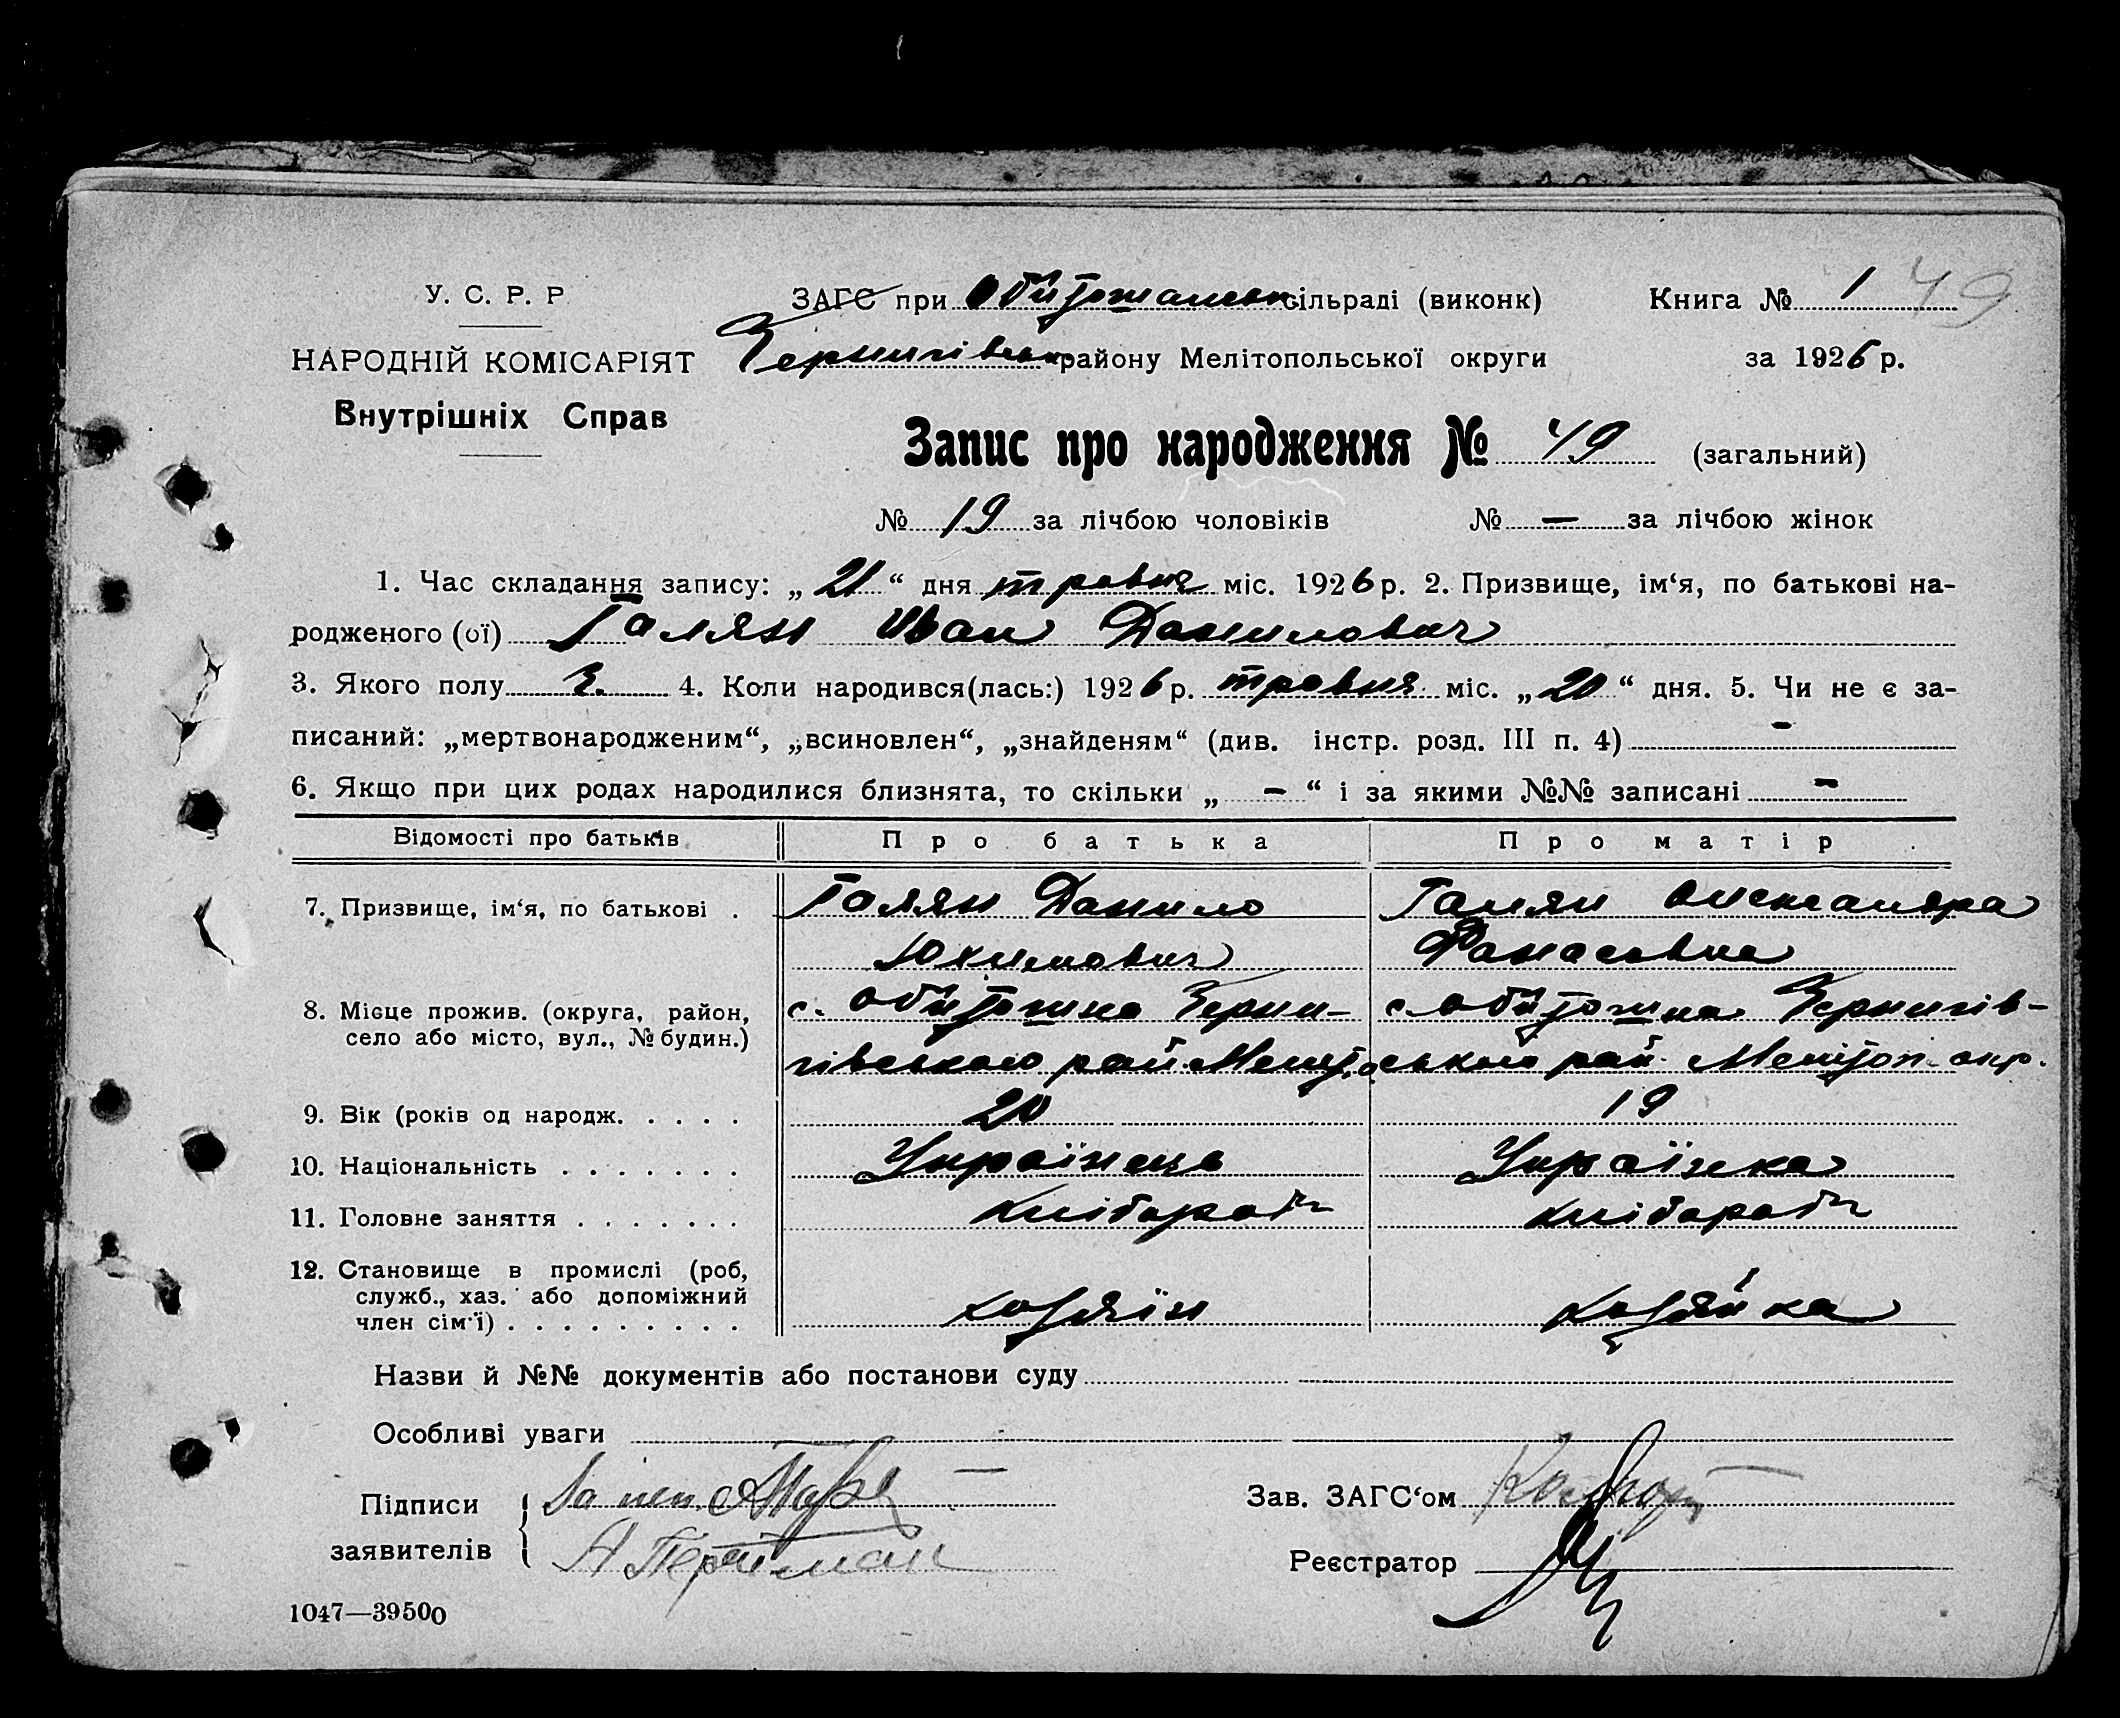 У. С. Р. Р.
ЗАГС при Обиточанськ сільраді (виконк)
Книга № 1 49
НАРОДНІЙ КОМІСАРІЯТ
Чернигівськ району Мелітопольської округи
за 1926 р.
Внутрішніх Справ
Запис про народження № 49 (загальний)
№ 19 за лічбою чоловіків № — за лічбою жінок
1. Час складання запису: „ 21 “ дня травня міс. 1926 р. 2. Призвище, ім‘я, по батькові на-
родженого (ої) Галян Иван Данилович
3. Якого полу ч. 4. Коли народився(лась:) 1926 р. травня міс. „ 20 “ дня. 5. Чи не є за-
писаний: „мертвонародженим“, „всиновлен“, „знайденям“ (див. інстр. розд. III п. 4) -
6. Якщо при цих родах народилися близнята, то скільки „ - “ і за якими №№ записані -
Відомості про батьків Про батька Про матір
7. Призвище, ім‘я, по батькові . Галян Данило Галян Олександра
Юхимович Фанасьвна
8. Місце прожив. (округа, район, с. Обиточна Черни- с. Обиточна Чернигів-
село або місто, вул., № будин.) гівського рай. Меліт. о ського рай. Мелітоп. окр.
9. Вік (років од народж. . . . . 20 19
10. Національність . . . . . . . Українець Українка
11. Головне заняття . . . . . . . хлібороб хлібороб
12. Становище в промислі (роб,
служб., хаз. або допоміжний
член сім‘ї) . . . . . . . . . хозяїн хозяйка
Назви й №№ документів або постанови суду
Особливі уваги
Підписи
Зав. ЗАГС‘ом
заявителів
Реєстратор
1047—39500